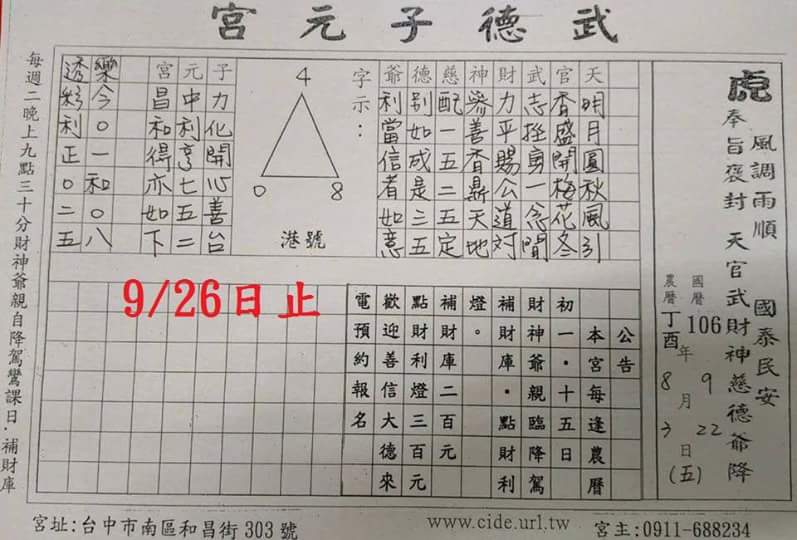 武德子元宮
虎
風調雨順 國泰民安
奉旨褒封 天官武財神慈德爺降
國曆 106年9月22日(五)
農曆 丁酉年8月3日
天明月圓秋風引
官香盛開梅花冬
武志挺勇一念間
財力平賜公道對
神參善香鼎天地
慈配一五二五定
德別如成是三五
爺利當信者如意
字示：
4
0 8
港號
子力化開心善台
元中利亨七五二
宮昌和得亦如下
樂今0一和0八
透彩利正0二五
9/26日止
公告
本宮每逢農曆
初一・十五日
財神爺親臨降駕
補財庫・點財利
燈。
補財庫二百元
點財利燈三百元
歡迎善信大德來
電預約報名
每週二晚上九點三十分財神爺親自降駕鸞課日・補財庫
宮址:台中市南區和昌街303號
www.cide.url.tw
宮主:0911-688234